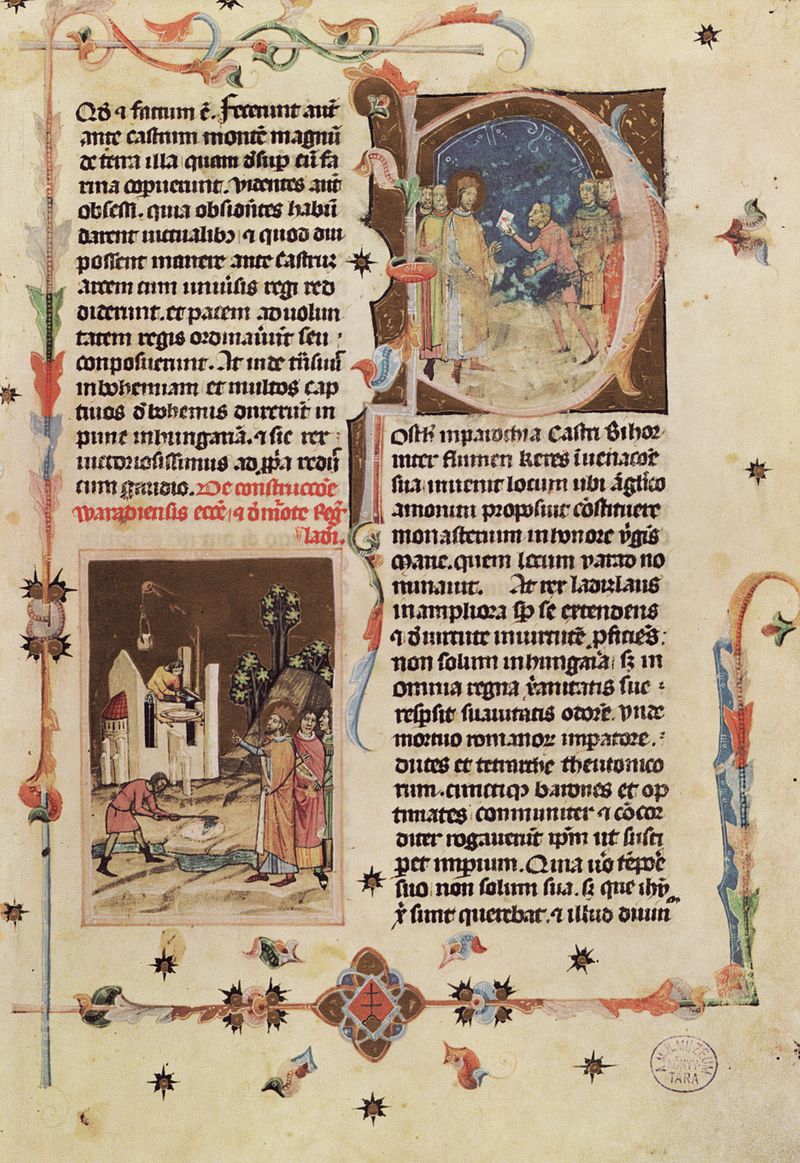 Qd̄ ⁊ factum ē. Fecerunt aūt
ante castrum montē magnū
de terra illa quam dsup cū fa
rina copuerunt. Videntes aūt
obsessi. quia obsidētes habū
darent uictualibꝫ ⁊ quod diu
possent manere ante castrum
arcem cum uniūsis regi red
diderunt. et pacem ad uolun
tatem regis ordinauūt seu
conposuerunt. At inde tūsiuit
in bohemiam et multos cap
tiuos d bohemis duxerūt in
pune in hungariā. ⁊ sic rex
uictoriosissimus ad ꝓpa rediit
cum gaudio. De construccōe
waradiensis ecce ⁊ d mōte Reg̃
ladi.
Osth in parochia Castri Bihor
inter flumen keres ī uenacōe
sua inuenit locum ubi āglico
amonitu proposuit cōstituere
monasterium in honore ỹgis
Marie. quem locum varad no
minauit. At rex ladizlaus
in ampliora sp̄ se extendens
⁊ d uirtute in uirtutē ꝓficiēs
non solum in hungaria sꝫ in
omnia regna x̄anitatis sue
respsit suauitatis odorē. vnde
mortuo romanoꝝ impatore.
duces et tetrarche theutonico
rum. cunctiqꝫ barones et op
timates communiter ⁊ cōcor
diter rogauerūt ipm̄ ut susci
pet impium. Quia uō tēpoē
suo non solum sua. sꝫ que ihū
x̄ sunt querebat. ⁊ illud diuini
A.M.N.MUZEUM
KÖNYV-
TÁRA